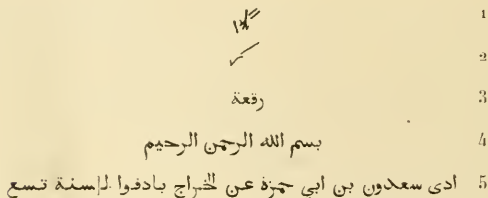 1
2
رقعة 3
بسم الله الرحمن الرحيم 4
ادى سعدون بن ابى حمزة عن الخراج بادفوا لسنة تسع 5